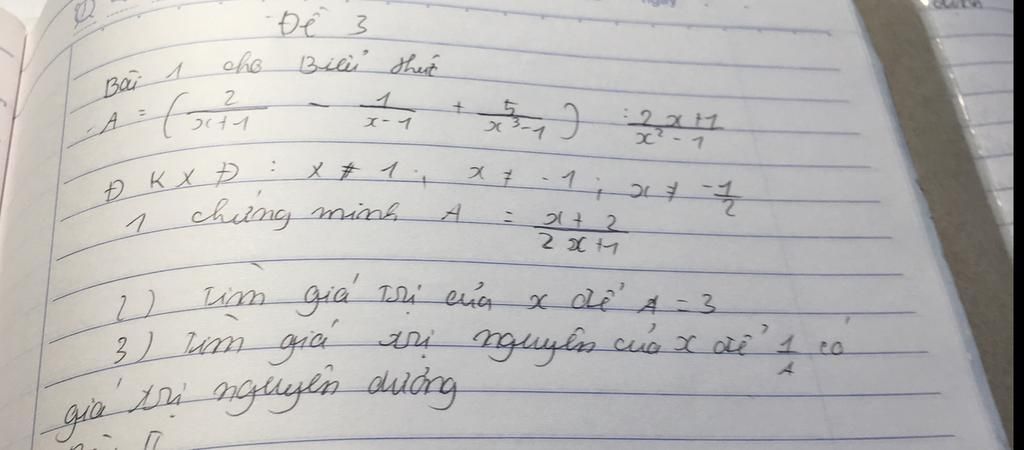 Đề 3
Bài 1 cho Biểu thức
A = ( 2/(x+1) - 1/(x-1) + 5/(x³-1) ) : (2x+1)/(x²-1)
Đ K X Đ : x ≠ 1 ; x ≠ -1 ; x ≠ -1/2
1 chứng minh A = (x+2)/(2x+1)
2) tìm giá trị của x để A = 3
3) tìm giá trị nguyên của x để 1/A có
giá trị nguyên dương